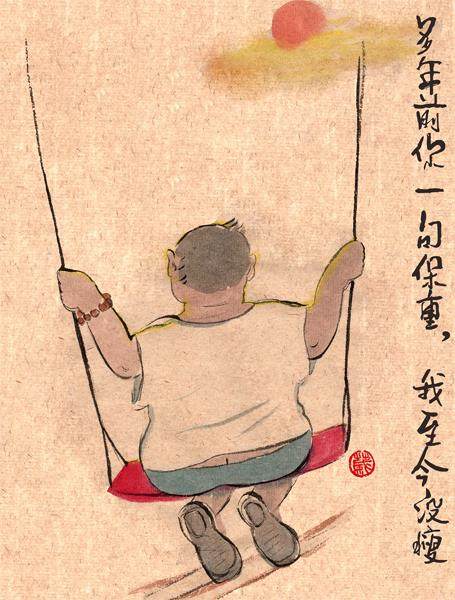 多年前你一句保重，我至今没瘦